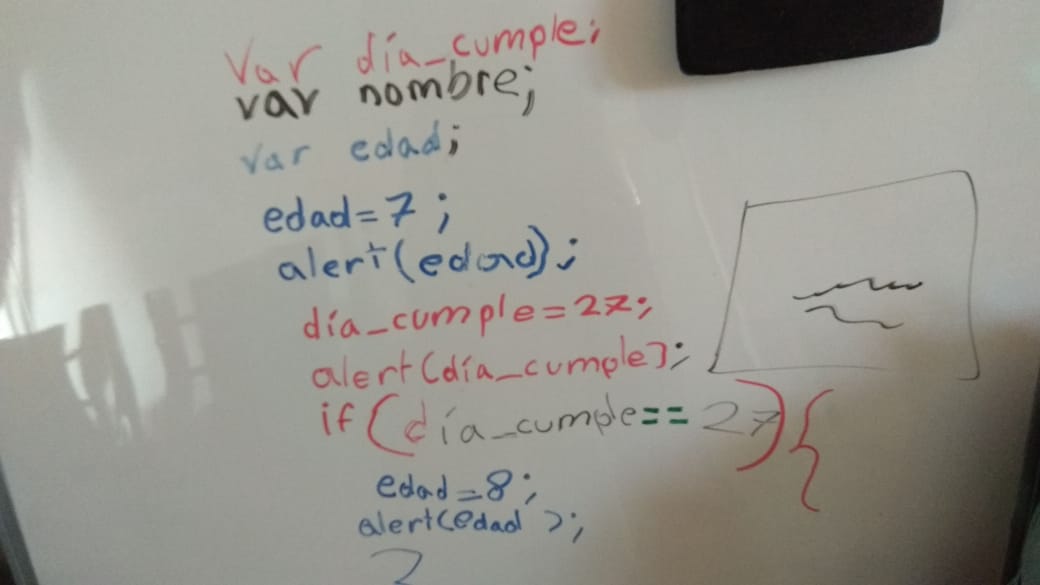 Var día_cumple;
var nombre;
var edad;
edad=7;
alert(edad);
día_cumple=27;
alert(día_cumple);
if(día_cumple==27){
edad=8;
alert(edad);
}